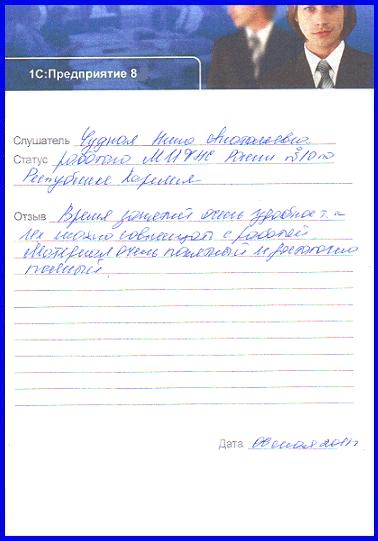 1С:Предприятие 8
Слушатель Чудная Нина Анатольевна
Статус работаю МИФНС России №10 по
Республике Карелия
Отзыв Время занятий очень удобное т.-
их можно совмещать с работой
Материал очень понятный и достаточно
полный
Дата 2011г